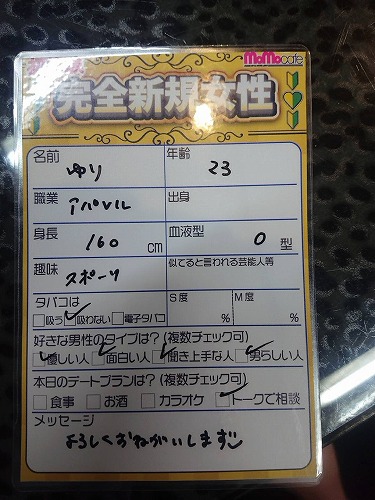 MoMocafe
完全新規女性
名前 ゆり 年齢 23
職業 アパレル 出身
身長 160 cm 血液型 O 型
趣味 スポーツ 似てると言われる芸能人等
タバコは S度 M度
□吸う ☑吸わない □電子タバコ % %
好きな男性のタイプは?(複数チェック可)
☑優しい人 ☑面白い人 ☑聞き上手な人 ☑男らしい人
本日のデートプランは?(複数チェック可)
□食事 □お酒 □カラオケ ☑トークで相談
メッセージ
よろしくおねがいします